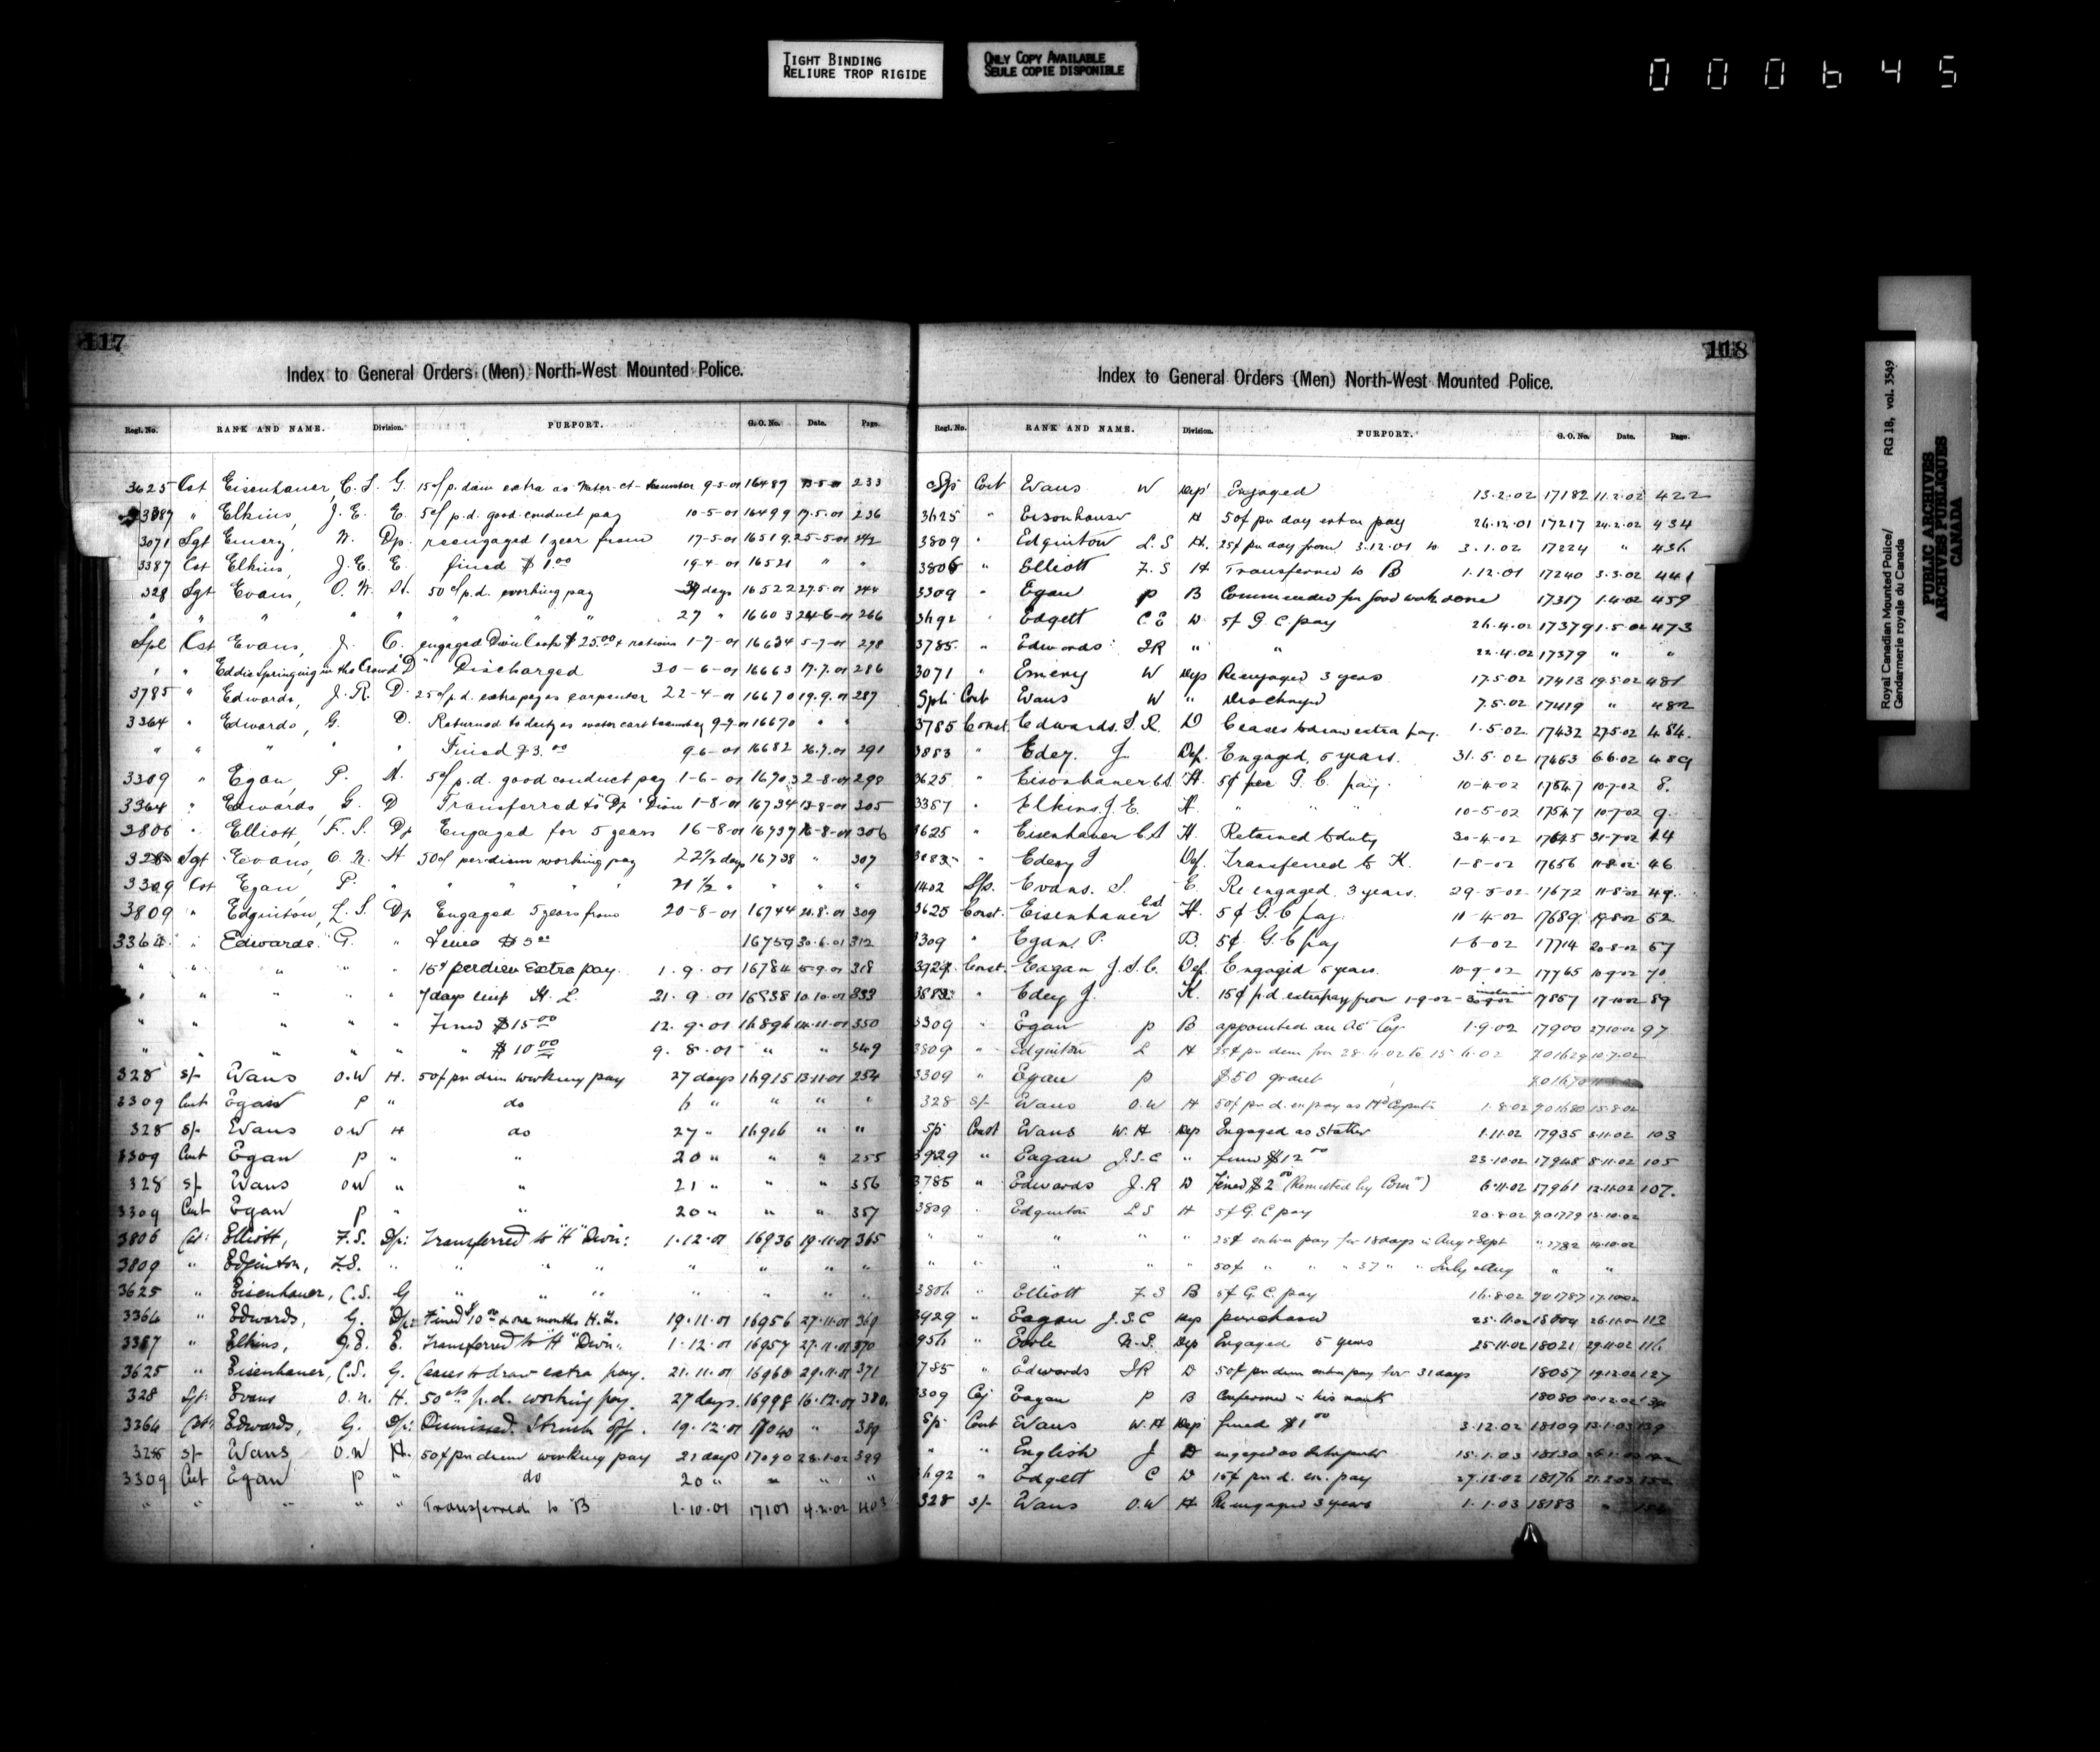 TIGHT BINDING
RELIURE TROP RIGIDE
ONLY COPY AVAILABLE
SEULE COPIE DISPONIBLE
000645
117
Index to General Orders (Men) North-West Mounted Police.
Regl. No. RANK AND NAME. Division. PURPORT. G. O. No. Date. Page.
3625 Cst Eisenhauer, C. S. G. 15¢ p. diem extra as 9-5-01 16489 233
3387 " Elkins, J. E. E. 5¢ p.d. good conduct pay 10-5-01 16499 17.5.01 236
3071 Sgt Emery, W. Dp. reengaged 1 year from 17-5-01 16519 25-5-01
3387 Cst Elkins, J. E. E. fined $1.00 19-4-01 16521 " "
328 Sgt Evans, O. W. H. 50¢ p.d. working pay days 16522 27.5.01 244
" " " " " " " 27 " 16603 24-6-01 266
Spl Cst Evans, J. C. engaged Divn Cook $25.00 & rations 1-7-01 16634 5-7-01 278
" " Eddie Springing in the Crowd "D" Discharged 30-6-01 16663 17.7.01 286
3785 " Edwards, J. R. D. 25¢ p.d. extra pay as carpenter 22-4-01 16670 19.9.01 287
3364 " Edwards, G. D. Returned to duty as water cart teamster 9-7-01 16670 " "
" " " " " Fined $3.00 9-6-01 16682 26.7.01 291
3309 " Egan, P. H. 5¢ p.d. good conduct pay 1-6-01 16703 2-8-01 298
3364 " Edwards, G. D Transferred to "Dp" Divn 1-8-01 16734 13-8-01 305
3806 " Elliott, F. S. Dp Engaged for 5 years 16-8-01 16737 16-8-01 306
328 Sgt Evans, O. W. H 50¢ per diem working pay 22½ days 16738 " 307
3309 Cst Egan, P. " " " " 21½ " " " "
3809 " Edginton, L. S. Dp Engaged 5 years from 20-8-01 16744 20.8.01 309
3364 " Edwards. G. " Fined $5.00 16759 30.6.01 312
" " " " " 15¢ per diem Extra pay. 1.9.01 16784 5.9.01 318
" " " " " 7 days impt H. L. 21.9.01 16838 10.10.01 333
" " " " " Fined $15.00 12.9.01 16896 14.11.01 350
" " " " " " $10.00 9.8.01 " " 349
328 S/- Evans O.W H. 50¢ per diem working pay 27 days 16915 13.11.01 254
3309 Cnst Egan P " do 6 " " " "
328 S/- Evans O.W H do 27 " 16916 " "
3309 Cnst Egan P " " 20 " " " 255
328 S/- Evans O.W " " 21 " " " 356
3309 Cnst Egan P " 20 " " " 357
3806 Cst: Elliott, F.S. Dp: Transferred to "H" Divn: 1.12.01 16936 19.11.01 365
3809 " Edginton, L.S. " " " " " " " "
3625 " Eisenhauer, C.S. G " " " " " " "
3364 " Edwards, G. Dp: Fined $10.00 & one months H.L. 19.11.01 16956 27.11.01 369
3387 " Elkins, J.E. E. Transferred to "H" Divn: 1.12.01 16957 27.11.01 370
3625 " Eisenhauer, C.S. G. Ceases to draw extra pay. 21.11.01 16960 29.11.01 371
328 Sgt: Evans O. W. H. 50cts p.d. working pay. 27 days. 16998 16.12.01 380.
3364 Cst: Edwards, G. Dp: Dismissed. Struck off. 19.12.01 17040 " 389
328 S/- Evans O.W H. 50¢ per diem working pay 21 days 17090 28.1.02 399
3309 Cnst Egan P " do 20 " " " "
" " " " Transferred to B 1.10.01 17101 4.2.02 403
118
Index to General Orders (Men) North-West Mounted Police.
Regl. No. RANK AND NAME. Division. PURPORT. G. O. No. Date. Page.
Sp Cost Evans W Dep Engaged 13.2.02 17182 11.2.02 422
3625 " Eisenhauer H 50¢ per day extra pay 26.12.01 17217 24.2.02 434
3809 " Edginton L. S H. 25¢ per day from 3.12.01 to 3.1.02 17224 " 436
3806 " Elliott F. S H Transferred to B 1.12.01 17240 3.3.02 441
3309 " Egan P B Commended for good work done 17317 1.4.02 459
3692 " Edgett C E D 5¢ G. C. pay 26.4.02 17379 1.5.02 473
3785. " Edwards JR " " 22.4.02 17379 " "
3071 " Emery W Dep Re engaged 3 years 17.5.02 17413 19.5.02 481
Spl. Cost Evans W " Discharged 7.5.02 17419 " 482
3785 Const. Edwards. J. R. D Ceases to draw extra pay. 1.5.02 17432 27.5.02 484.
3883 " Edey. J. Dep. Engaged, 5 years. 31.5.02 17453 6.6.02 489
3625 " Eisenhauer C.S. H. 5¢ per G. C. pay. 10-4-02 17547 10-7-02 8.
3387 " Elkins. J. E. H. " " " 10-5-02 17547 10-7-02 9.
3625 " Eisenhauer C. S H. Returned to duty 30-4-02 17645 31-7-02 44
" Edey J Dep. Transferred to K. 1-8-02 17656 11-8-02 46
1402 S/s. Evans. S. E. Re engaged. 3 years. 29-5-02 17672 11-8-02 49.
3625 Const. Eisenhauer C.S H. 5¢ G. C pay. 11-4-02 17689 19-8-02 52
3309 " Egan. P. B. 5¢ G. C pay 1-6-02 17714 20-8-02 57
3929 Const. Eagan J. S. C. Dep. Engaged 5 years. 10-9-02 17765 10-9-02 70
3883 " Edey J. K. 15¢ p.d. extra pay from 1-9-02 - 30-9-02 inclusive 17857 17-10-02 89
3309 " Egan P B appointed an Ac Cpl. 1.9.02 17900 27.10.02 97
3809 " Edginton L H 25¢ per diem from 28.4.02 to 15.6.02
3309 " Egan P $50 grant
328 S/- Evans O.W H 50¢ per d. ex pay as 1.8.02 15.8.02
Sp Const Evans W. H Dep Engaged as 1.11.02 17935 3.11.02 103
3929 " Eagan J.S.C " fined $12.00 23.10.02 17948 8.11.02 105
3785 " Edwards J. R D Fined $2.00 (Remitted by) 6.11.02 17961 12.11.02 107.
3809 " Edginton L S H 5¢ G. C pay 20.8.02 13.10.02
" " " " " 25¢ extra pay for 18 days in Aug & Sept 14.10.02
" " " " " 50¢ " " " 37 " " July & Aug " "
3806 " Elliott F. S B 5¢ G. C. pay 16.8.02 17.10.02
3929 " Eagan J.S.C Dep purchased 18004 26.11.02 112
3956 " Earle N. S. Dep Engaged 5 years 25.11.02 18021 29.11.02 116
3785 " Edwards JR D 50¢ per diem extra pay for 31 days 18057 19.12.02 127
3309 Cpl Eagan P B Confirmed in his rank 18080 30.12.02
Sp: Const Evans W. H Dep fined $1.00 3.12.02 18109 13.1.03 139
" " English J D engaged as 15.1.03 18130
3692 " Edgett C D 15¢ per d. ex. pay 27.12.02 18176 21.2.03
328 S/- Evans O.W H Re engaged 3 years 1.1.03 18183 "
Royal Canadian Mounted Police/
Gendarmerie royale du Canada
RG 18, vol. 3549
PUBLIC ARCHIVES
ARCHIVES PUBLIQUES
CANADA